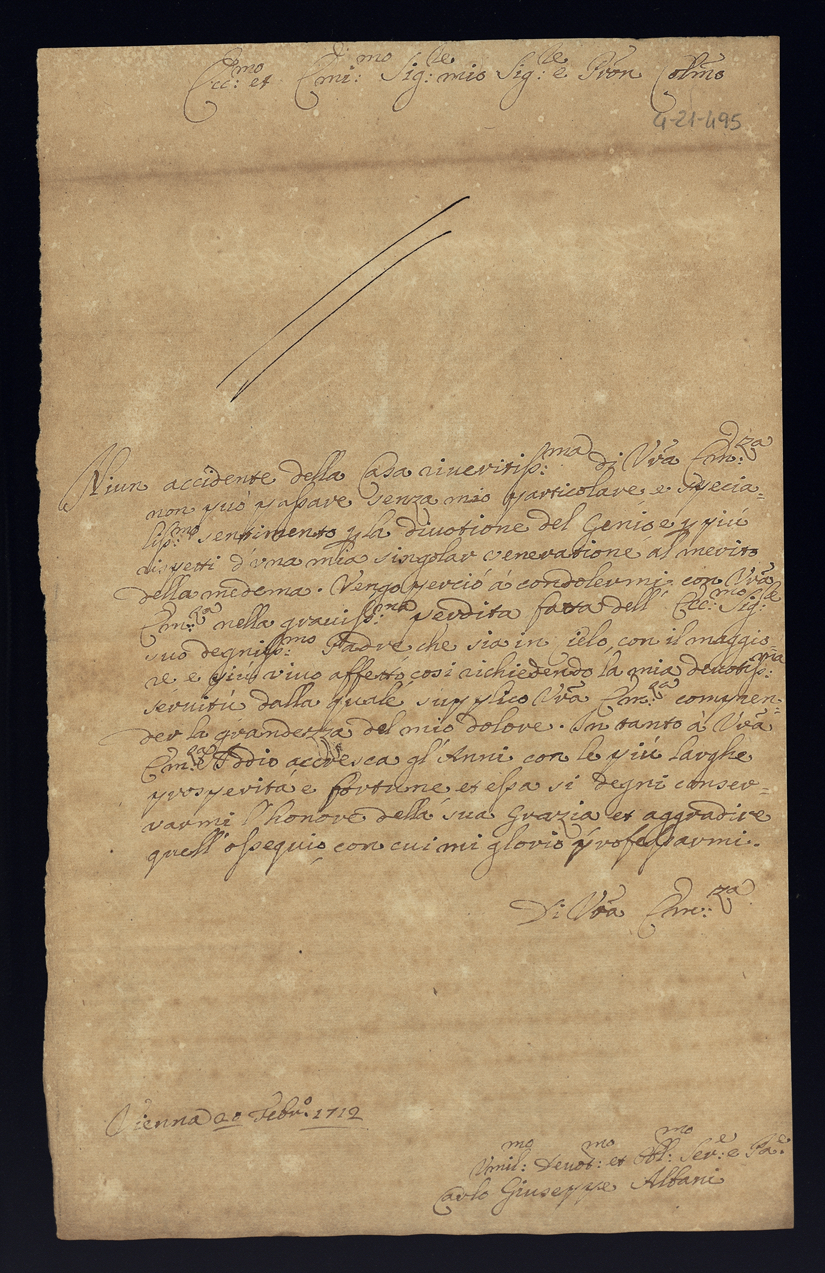 Ecc:mo et Emi:mo Sig:re mio Sig:re e Pron Colmo
4-21-495
Niun accidente della Casa riveritiss:ma di Vrã Em:za
non può passare senza mio particolare e specia-
liss:mo sentimento p la divotione del Genio é p più
rispetti d'una mia singolar veneratione al merito
della medema. Vengo perciò á condolermi con Vrã
Em:za nella graviss:ma perdita fatta dell' Ecc:mo Sig:re
suo degniss:mo Padre che sia in Cielo, con il maggio-
re e più vivo affetto così richiedendo la mia devotiss:ma
servitù dalla quale supplico Vrã Em:za compren-
der la grandezza del mio dolore. In tanto á Vrã
Em:za Iddio accresca gl'Anni con le più larghe
prosperitá e fortune et essa si degni conser-
varmi l'honore della sua grazia et aggradire
quell' ossequio, con cui mi glorio professarmi.
Di Vrã Em:za
Vienna 20 Febr:o 1712
Umil:mo Devot:mo et Obl:mo Ser:e e
Carlo Giuseppe Albani